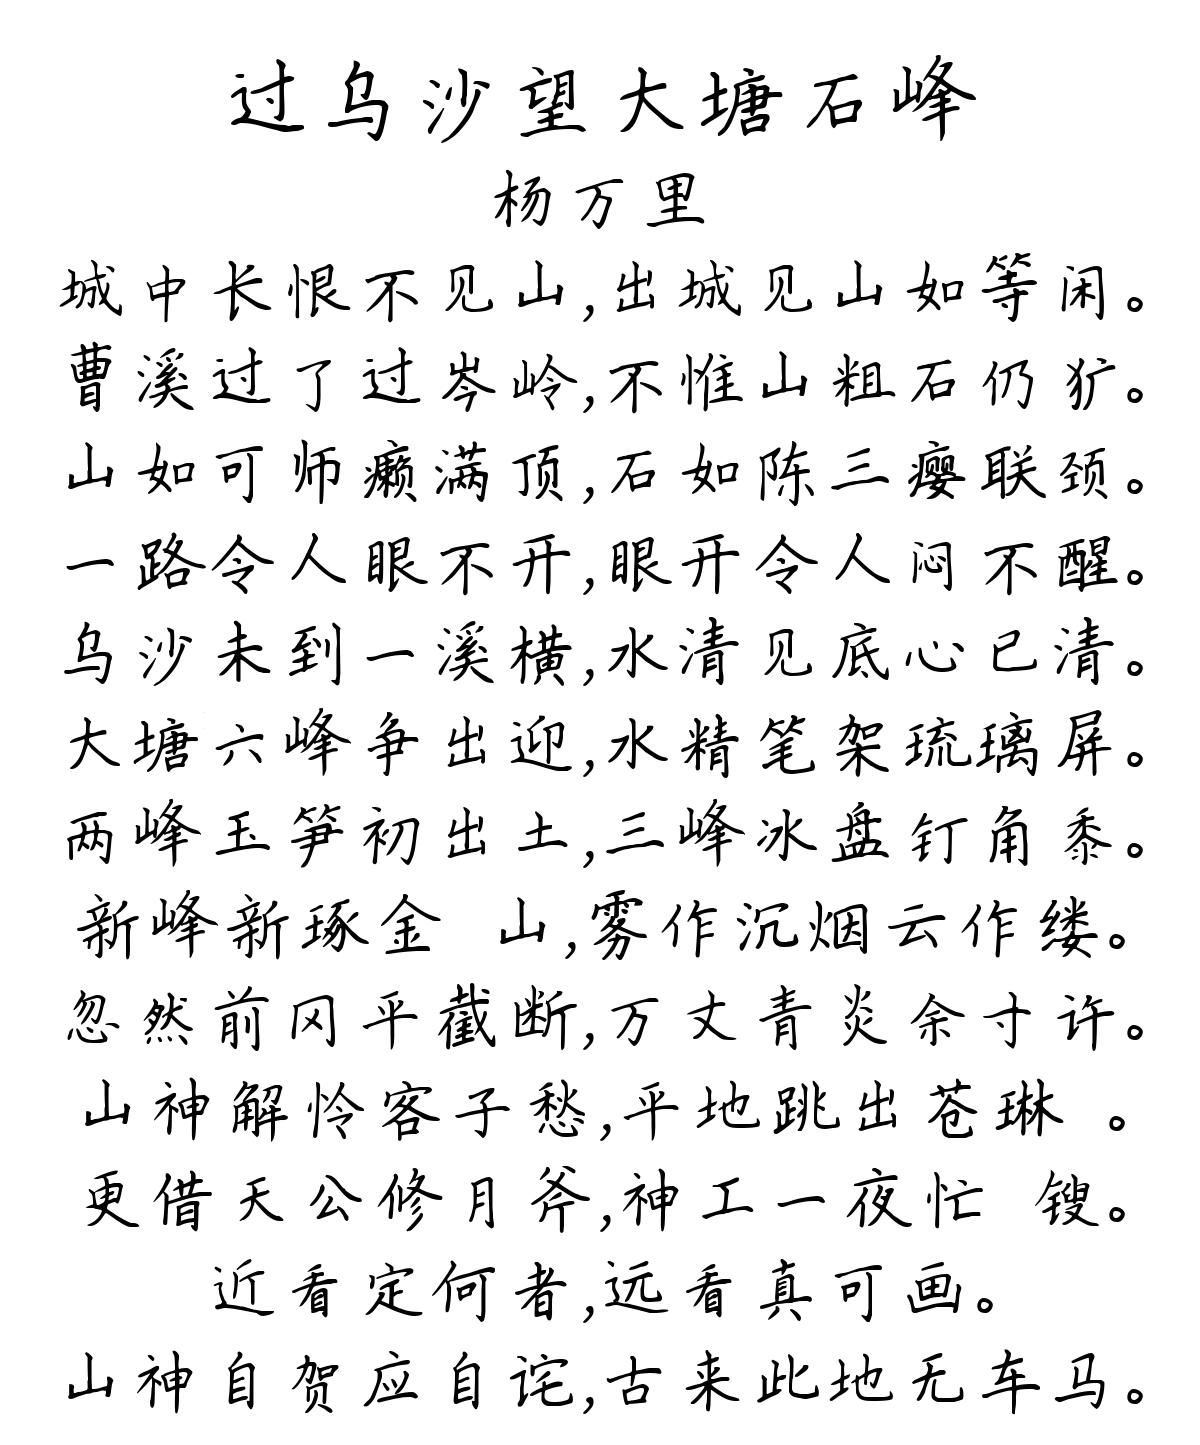 过乌沙望大塘石峰
杨万里
城中长恨不见山,出城见山如等闲。
曹溪过了过岑岭,不惟山粗石仍犷。
山如可师癞满顶,石如陈三瘿联颈。
一路令人眼不开,眼开令人闷不醒。
乌沙未到一溪横,水清见底心已清。
大塘六峰争出迎,水精笔架琉璃屏。
两峰玉笋初出土,三峰冰盘钉角黍。
新峰新琢金 山,雾作沉烟云作缕。
忽然前冈平截断,万丈青炎余寸许。
山神解怜客子愁,平地跳出苍琳 。
更借天公修月斧,神工一夜忙 锼。
近看定何者,远看真可画。
山神自贺应自诧,古来此地无车马。